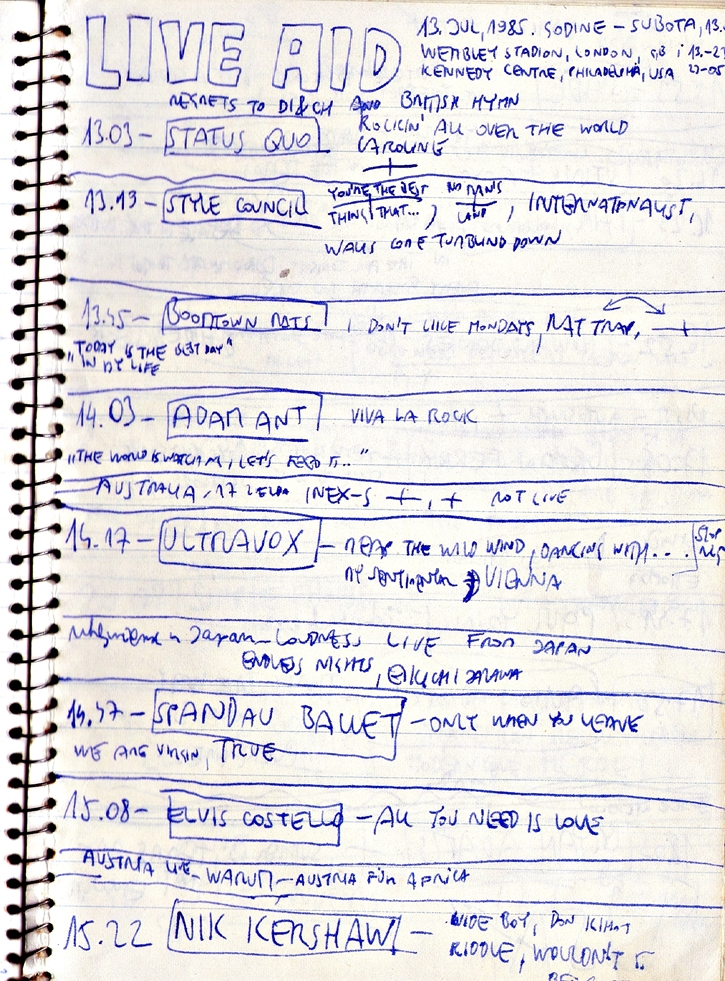 LIVE AID
13. JUL, 1985. GODINE - SUBOTA, 13.
WEMBLEY STADION, LONDON, GB i 13.-2
KENNEDY CENTRE, PHILADELPHIA, USA
REGRETS TO DI&CH AND BRITISH HYMN
13.03 - STATUS QUO
ROCKIN' ALL OVER THE WORLD
CAROLINE
+
13.13 - STYLE COUNCIL
YOU'RE THE BEST THING THAT...), NO MAN'S LAND, INTERNATIONALIST,
WALLS COME TUMBLING DOWN
13.45 - BOOMTOWN RATS I DON'T LIKE MONDAYS, RAT TRAP, +
"TODAY IS THE BEST DAY"
IN MY LIFE
14.03 - ADAM ANT VIVA LA ROCK
"THE WORLD IS WATCHIN, LET'S FEED IT.."
AUSTRALIA, 17 INEX-S +, + NOT LIVE
14.17 - ULTRAVOX - REAP THE WILD WIND, DANCING WITH...
VIENNA
Japan - LOUDNESS LIVE FROM JAPAN
ENDLESS NIGHTS,
14.47 - SPANDAU BALLET - ONLY WHEN YOU LEAVE
WE ARE VIRGIN, TRUE
15.08 - ELVIS COSTELLO - ALL YOU NEED IS LOVE
AUSTRIA LIVE - WARUM - AUSTRIA FÜR AFRICA
15.22 NIK KERSHAW -
WIDE BOY, DON KIHOT
RIDDLE, WOULDN'T IT